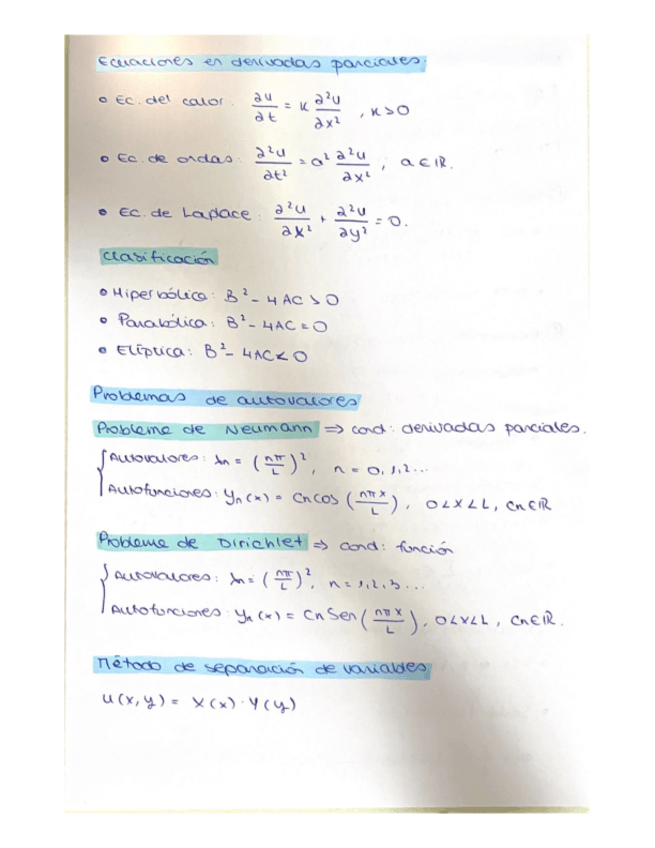 Ecuaciones en derivadas parciales:
• Ec. del calor: ∂u/∂t = K ∂²u/∂x² , K>0
• Ec. de ondas: ∂²u/∂t² = a² ∂²u/∂x² ; a∈ℝ.
• Ec. de Laplace: ∂²u/∂x² + ∂²u/∂y² = 0.
Clasificación
• Hiperbólica: B² - 4AC > 0
• Parabólica: B² - 4AC = 0
• Elíptica: B² - 4AC < 0
Problemas de autovalores
Problema de Neumann ⇒ cond: derivadas parciales.
Autovalores: λn = (nπ/L)², n = 0, 1, 2...
Autofunciones: yn(x) = Cn cos (nπx/L), 0<x<L, Cn∈ℝ
Problema de Dirichlet ⇒ cond: función
Autovalores: λn = (nπ/L)², n = 1, 2, 3...
Autofunciones: yn(x) = Cn Sen (nπx/L), 0<x<L, Cn∈ℝ.
Método de separación de variables
u(x,y) = X(x) · Y(y)